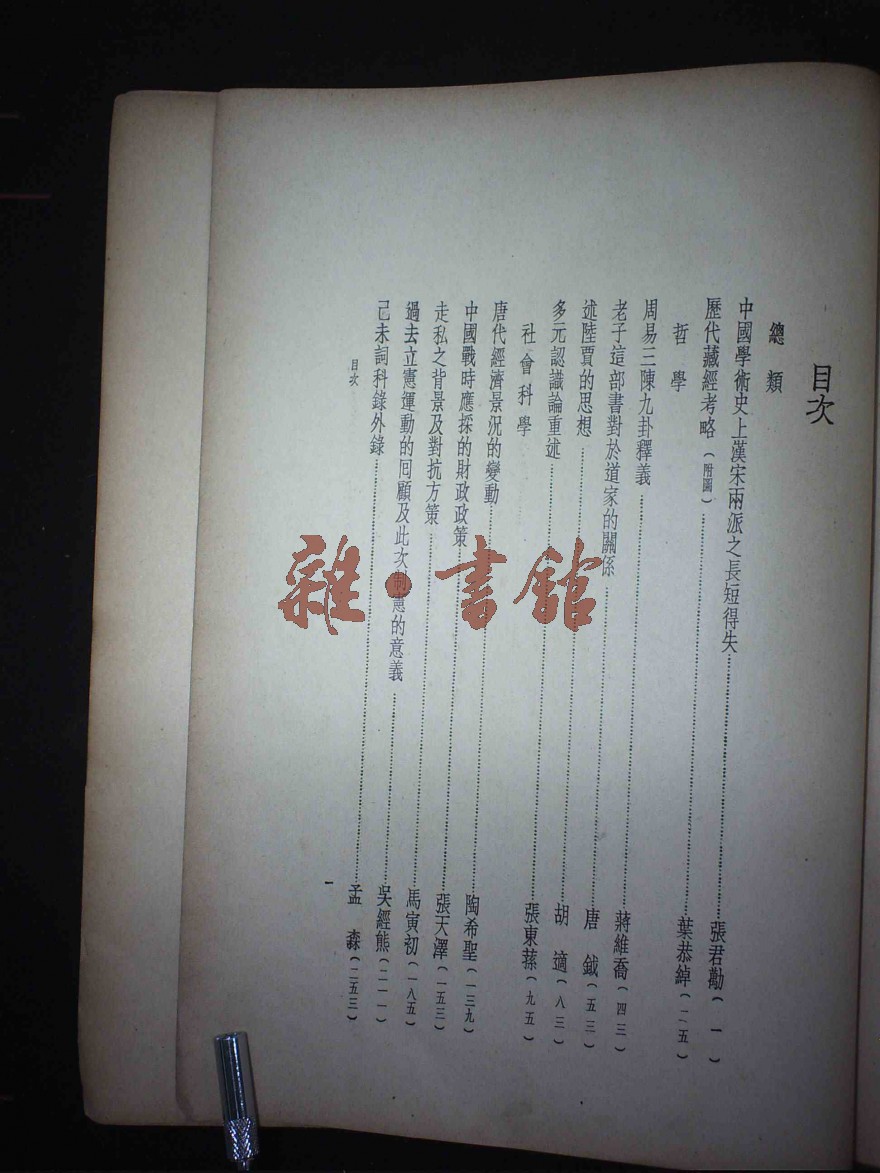 目次
總類
中國學術史上漢宋兩派之長短得失……張君勱(一)
歷代藏經考略(附圖)……葉恭綽(二五)
哲學
周易三陳九卦釋義……蔣維喬(四三)
老子這部書對於道家的關係……唐鉞(五三)
述陸賈的思想……胡適(八三)
多元認識論重述……張東蓀(九五)
社會科學
唐代經濟景況的變動……陶希聖(一三九)
中國戰時應採的財政政策……張天澤(一五三)
走私之背景及對抗方策……馬寅初(一八五)
過去立憲運動的囘顧及此次制憲的意義……吳經熊(二一一)
己未詞科錄外錄……孟森(二五三)
目次
一
雜·書館